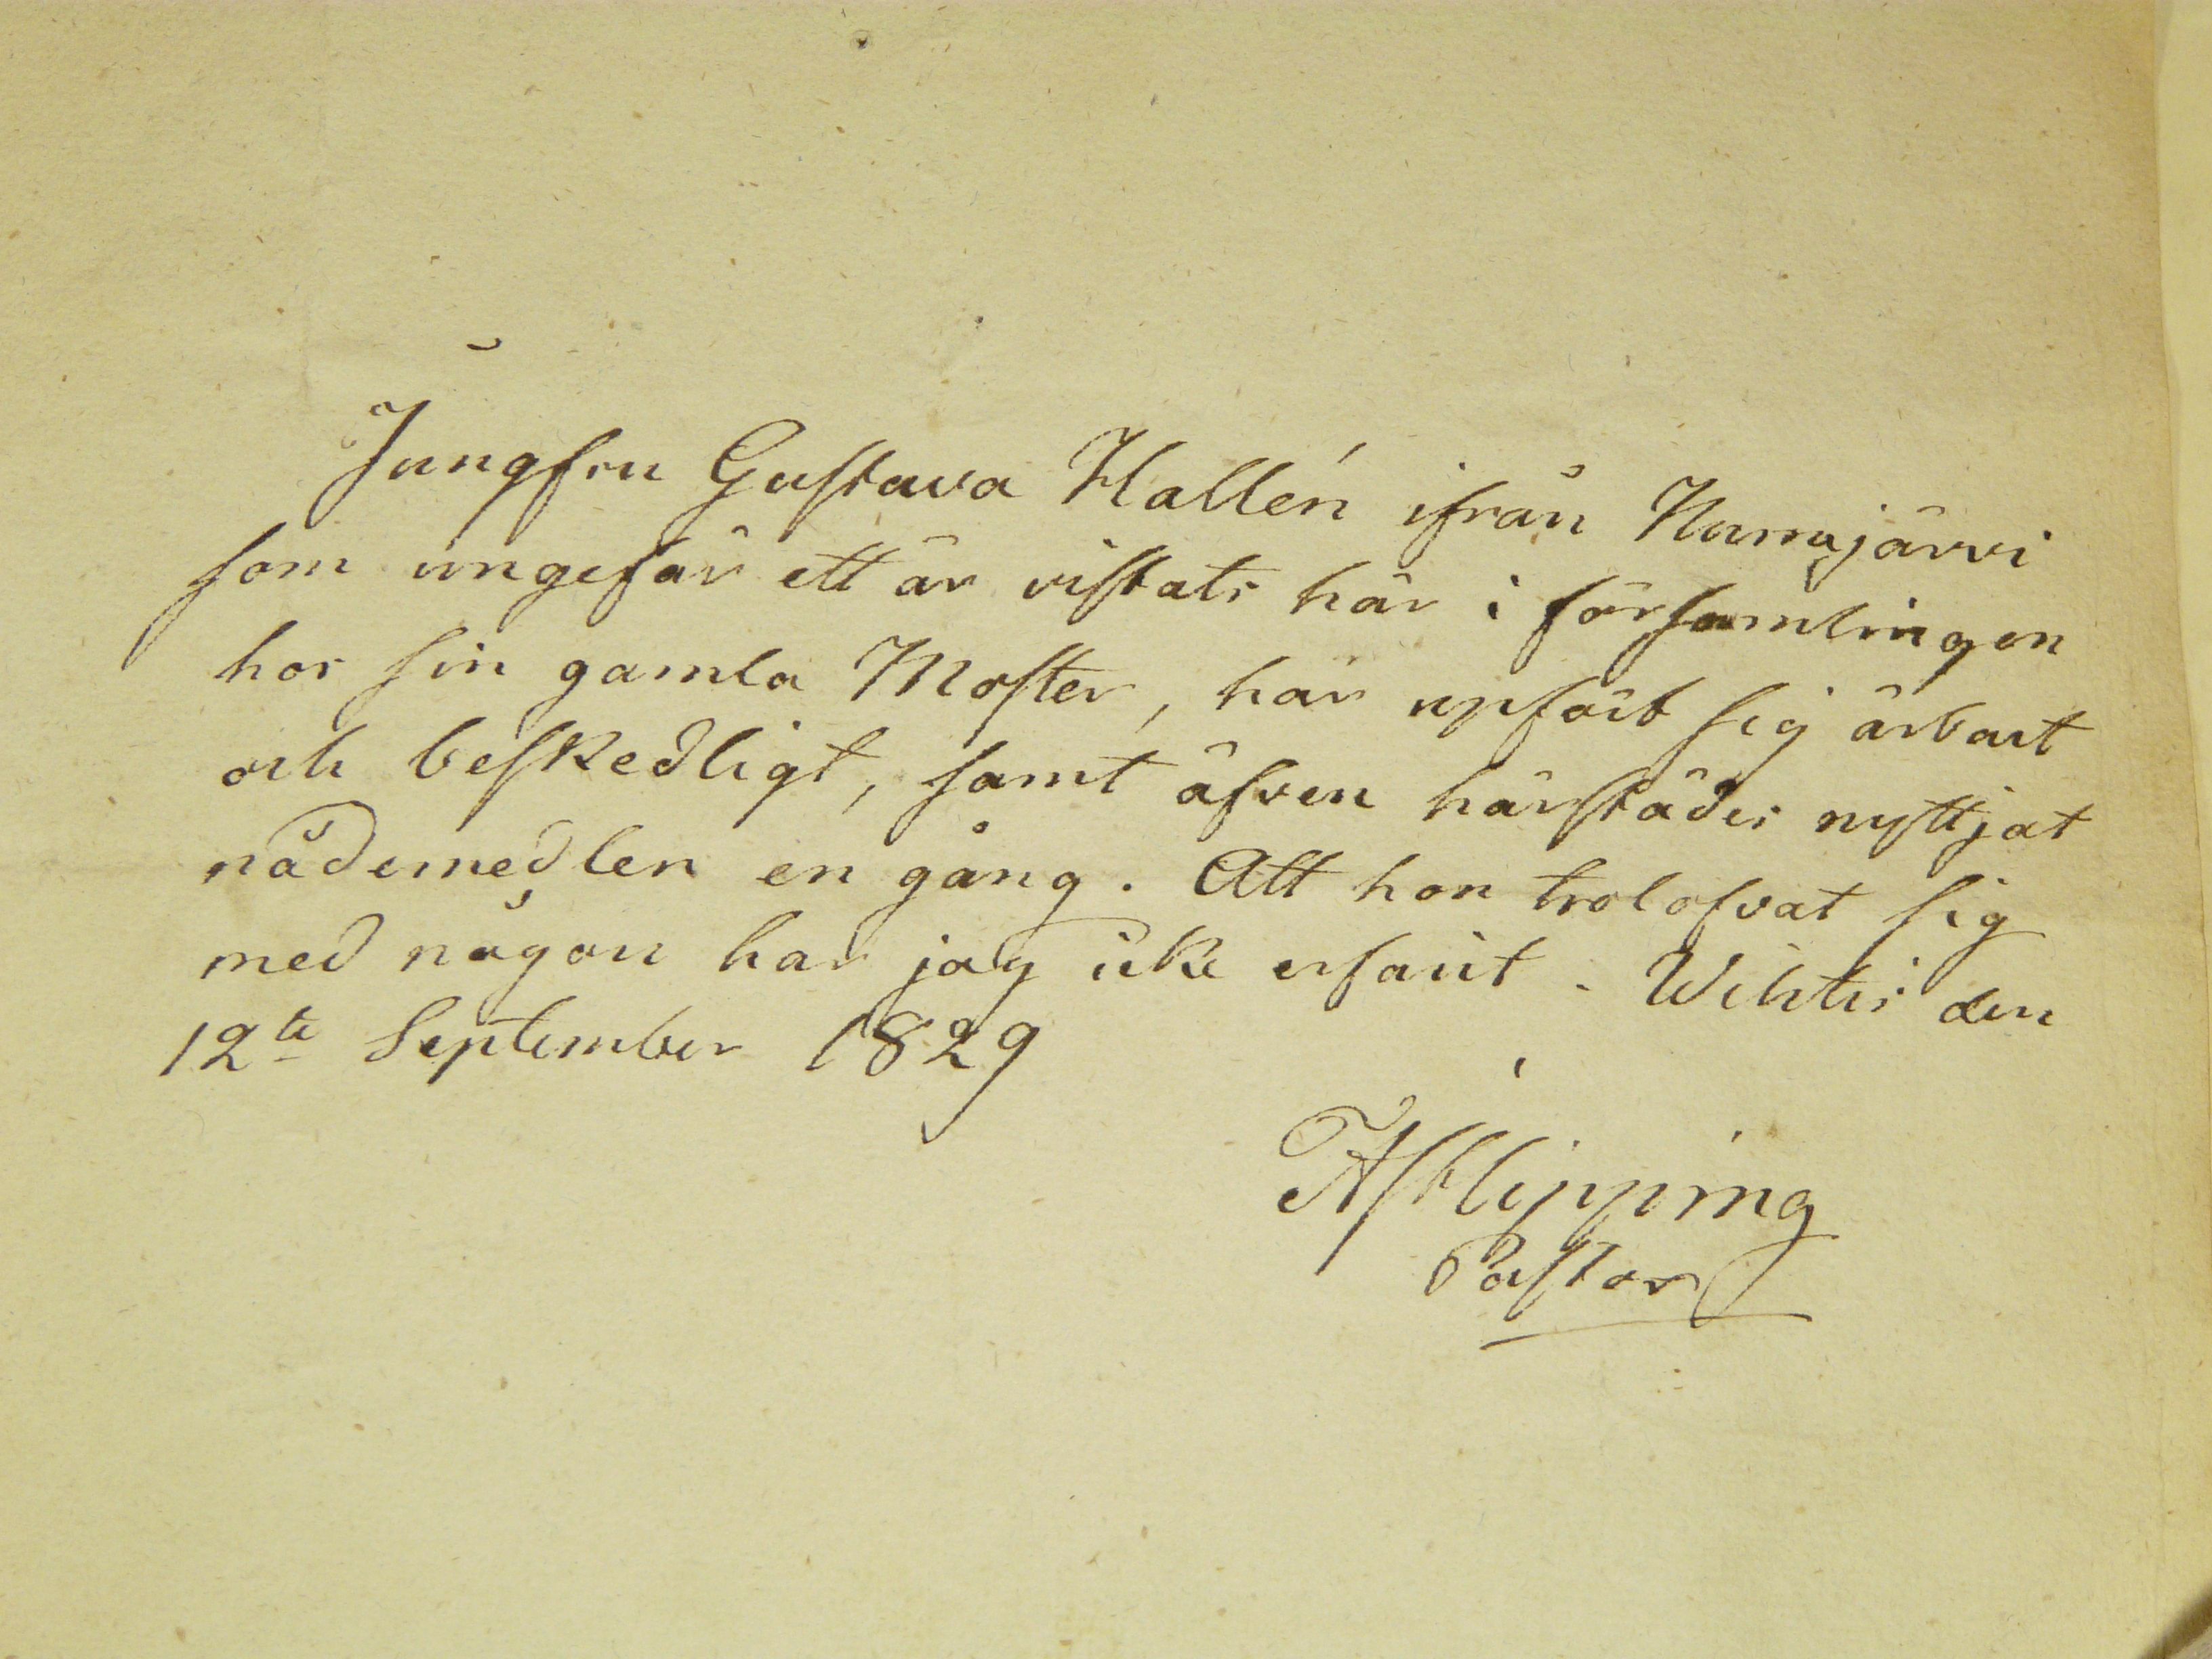 Jungfru Gustava Hallén ifrån Nurmijärvi
som ungefär ett år vistats här i församlingen
hos sin gamla Moster, har upfört sig ärbart
och beskedligt, samt äfven härstädes nyttjat
nådemedlen en gång. Att hon trolofvat sig
med någon har jag icke erfarit. Wichtis den
12te September 1829
Pastor